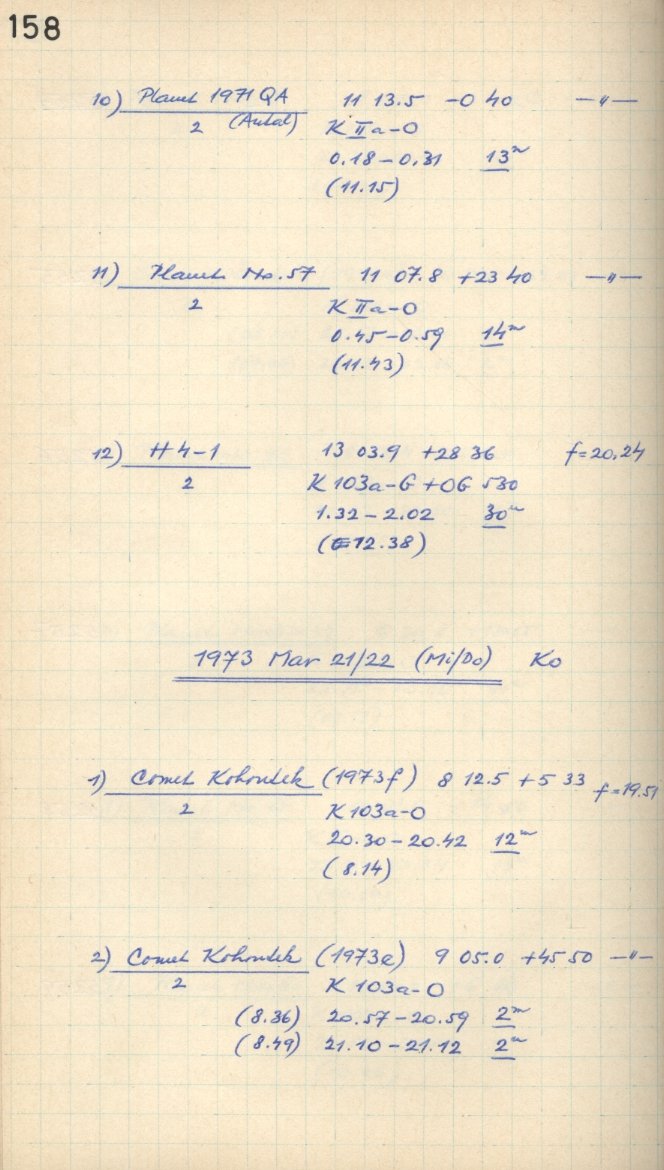 158
10) Planet 1971 QA 11 13.5 -0 40 —"—
2 (Antal) K IIa-O
0.18-0.31 13m
(11.15)
11) Planet No. 57 11 07.8 +23 40 —"—
2 K IIa-O
0.45-0.59 14m
(11.43)
12) H4-1 13 03.9 +28 36 f=20.24
2 K 103a-G +OG 530
1.32-2.02 30m
(12.38)
1973 Mar 21/22 (Mi/Do) Ko
1) Comet Kohoutek (1973f) 8 12.5 +5 33 f=19.51
2 K 103a-O
20.30-20.42 12m
(8.14)
2) Comet Kohoutek (1973e) 9 05.0 +45 50 —"—
2 K 103a-O
(8.36) 20.57-20.59 2m
(8.49) 21.10-21.12 2m